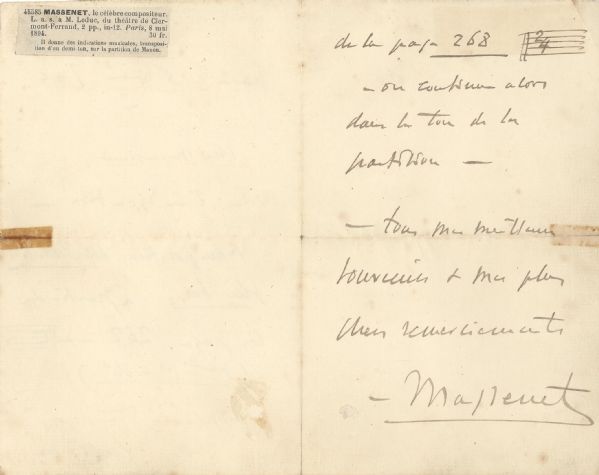 45585 MASSENET, le célèbre compositeur.
L. a. s. à M. Leduc, du théâtre de Cler-
mont-Ferrand, 2 pp., in-12. Paris, 8 mai
1894. 30 fr.
Il donne des indications musicales, transposi-
tion d'un demi ton, sur la partition de Manon.
de la page 268 2/4
– on continue alors
dans le ton de la
partition –
– tous mes meilleurs
souvenirs & mes plus
chers remerciements
– Massenet